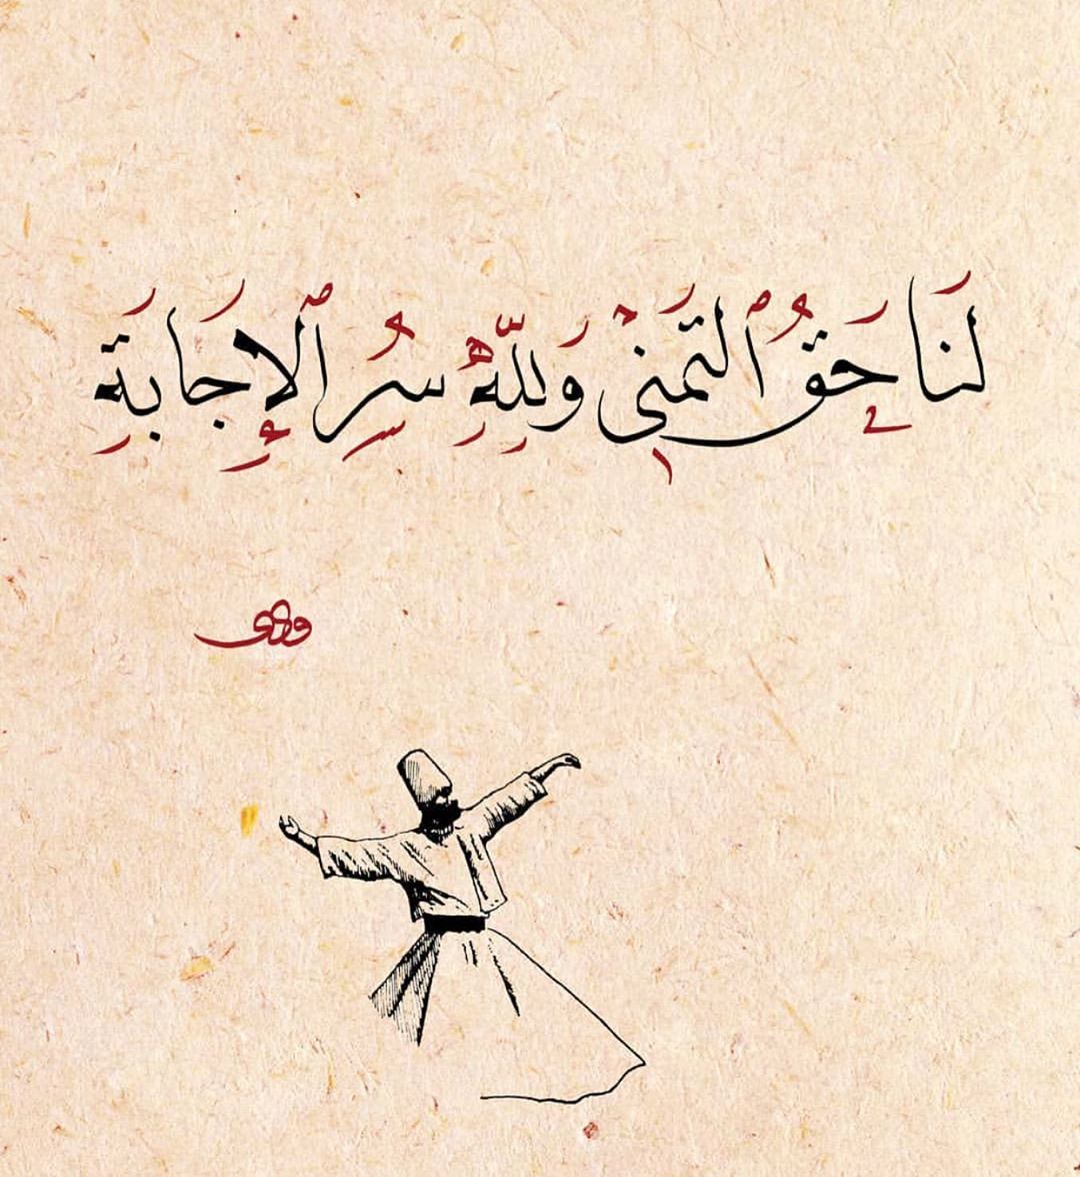 لَنَا حَقُ ٱلتَمَنِي وَلِلّٰهِ سِرُ ٱلإِجَابَةِ